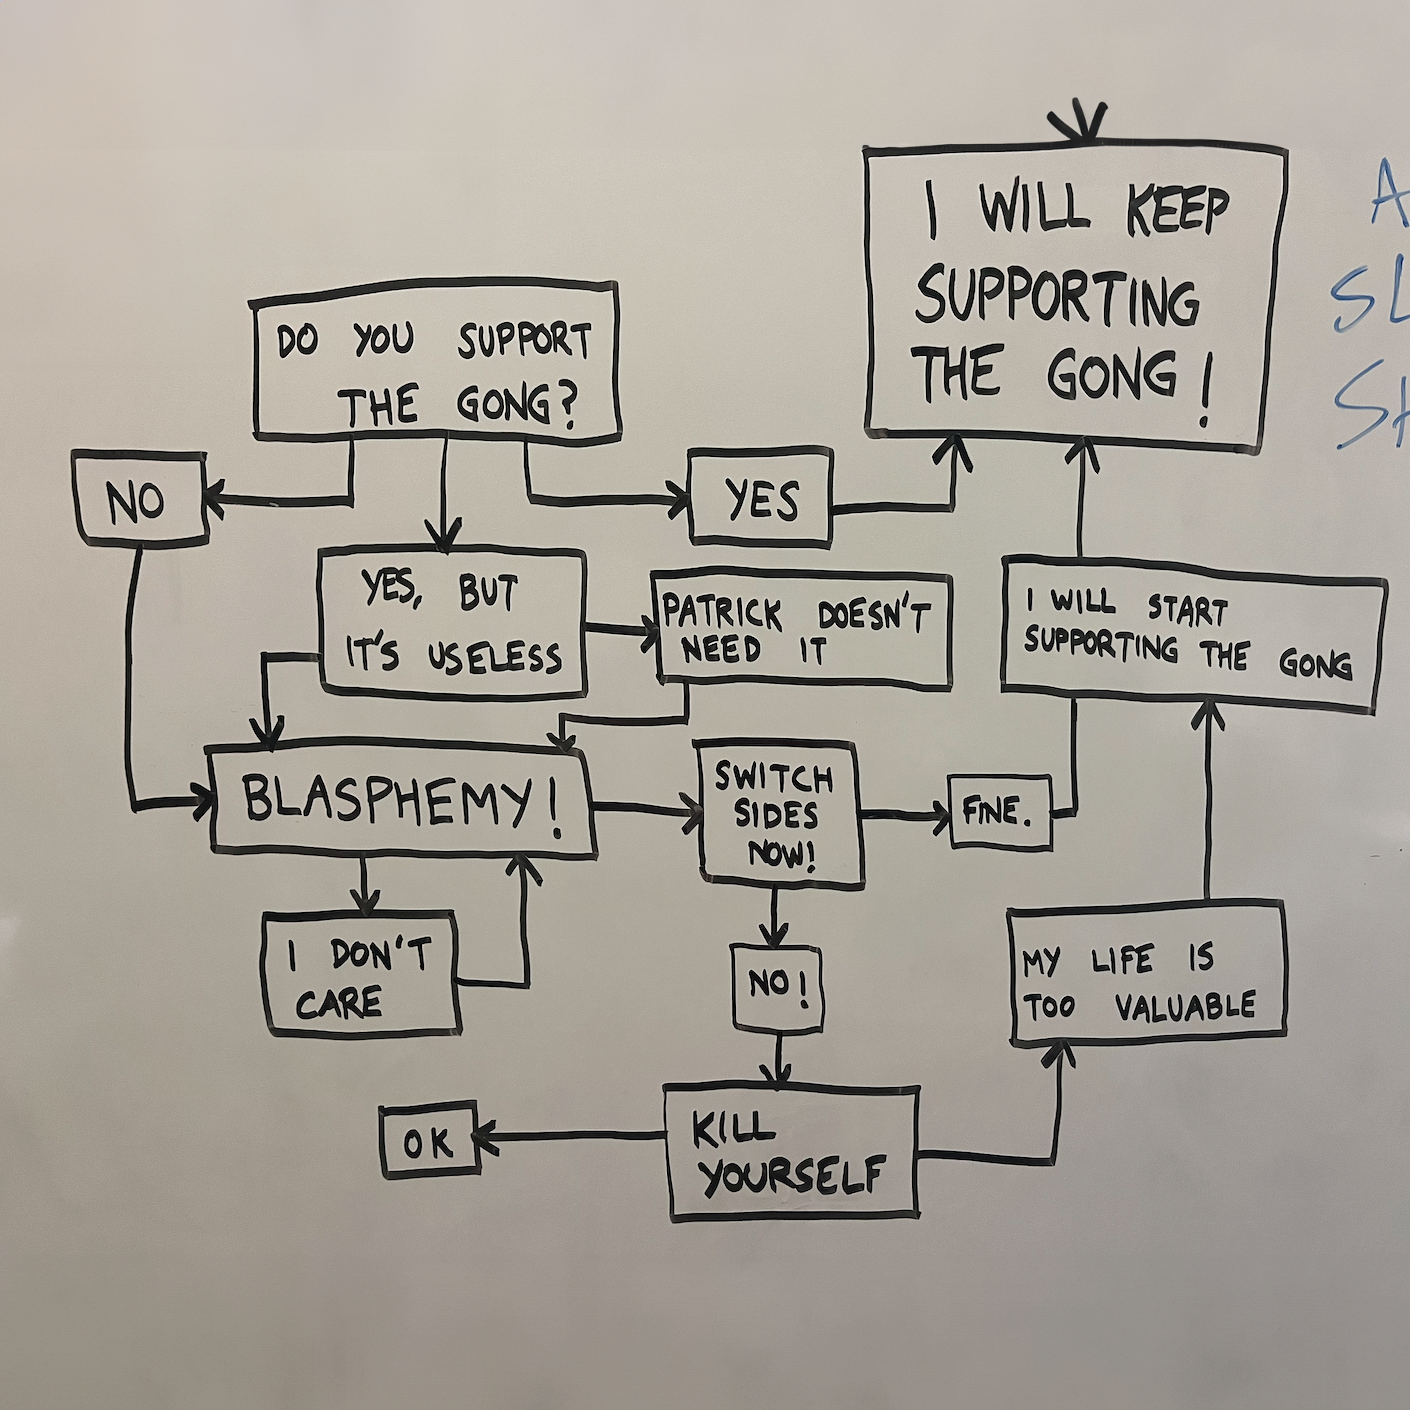 I WILL KEEP
SUPPORTING
THE GONG!
DO YOU SUPPORT
THE GONG?
NO
YES
YES, BUT
IT'S USELESS
PATRICK DOESN'T
NEED IT
I WILL START
SUPPORTING THE GONG
BLASPHEMY!
SWITCH
SIDES
NOW!
FINE.
I DON'T
CARE
NO!
MY LIFE IS
TOO VALUABLE
OK
KILL
YOURSELF